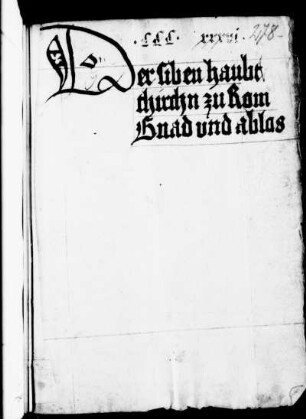 · CCC · xxxvi · 278
Der siben haubt
chirchn zu Rom
Gnad vnd ablos